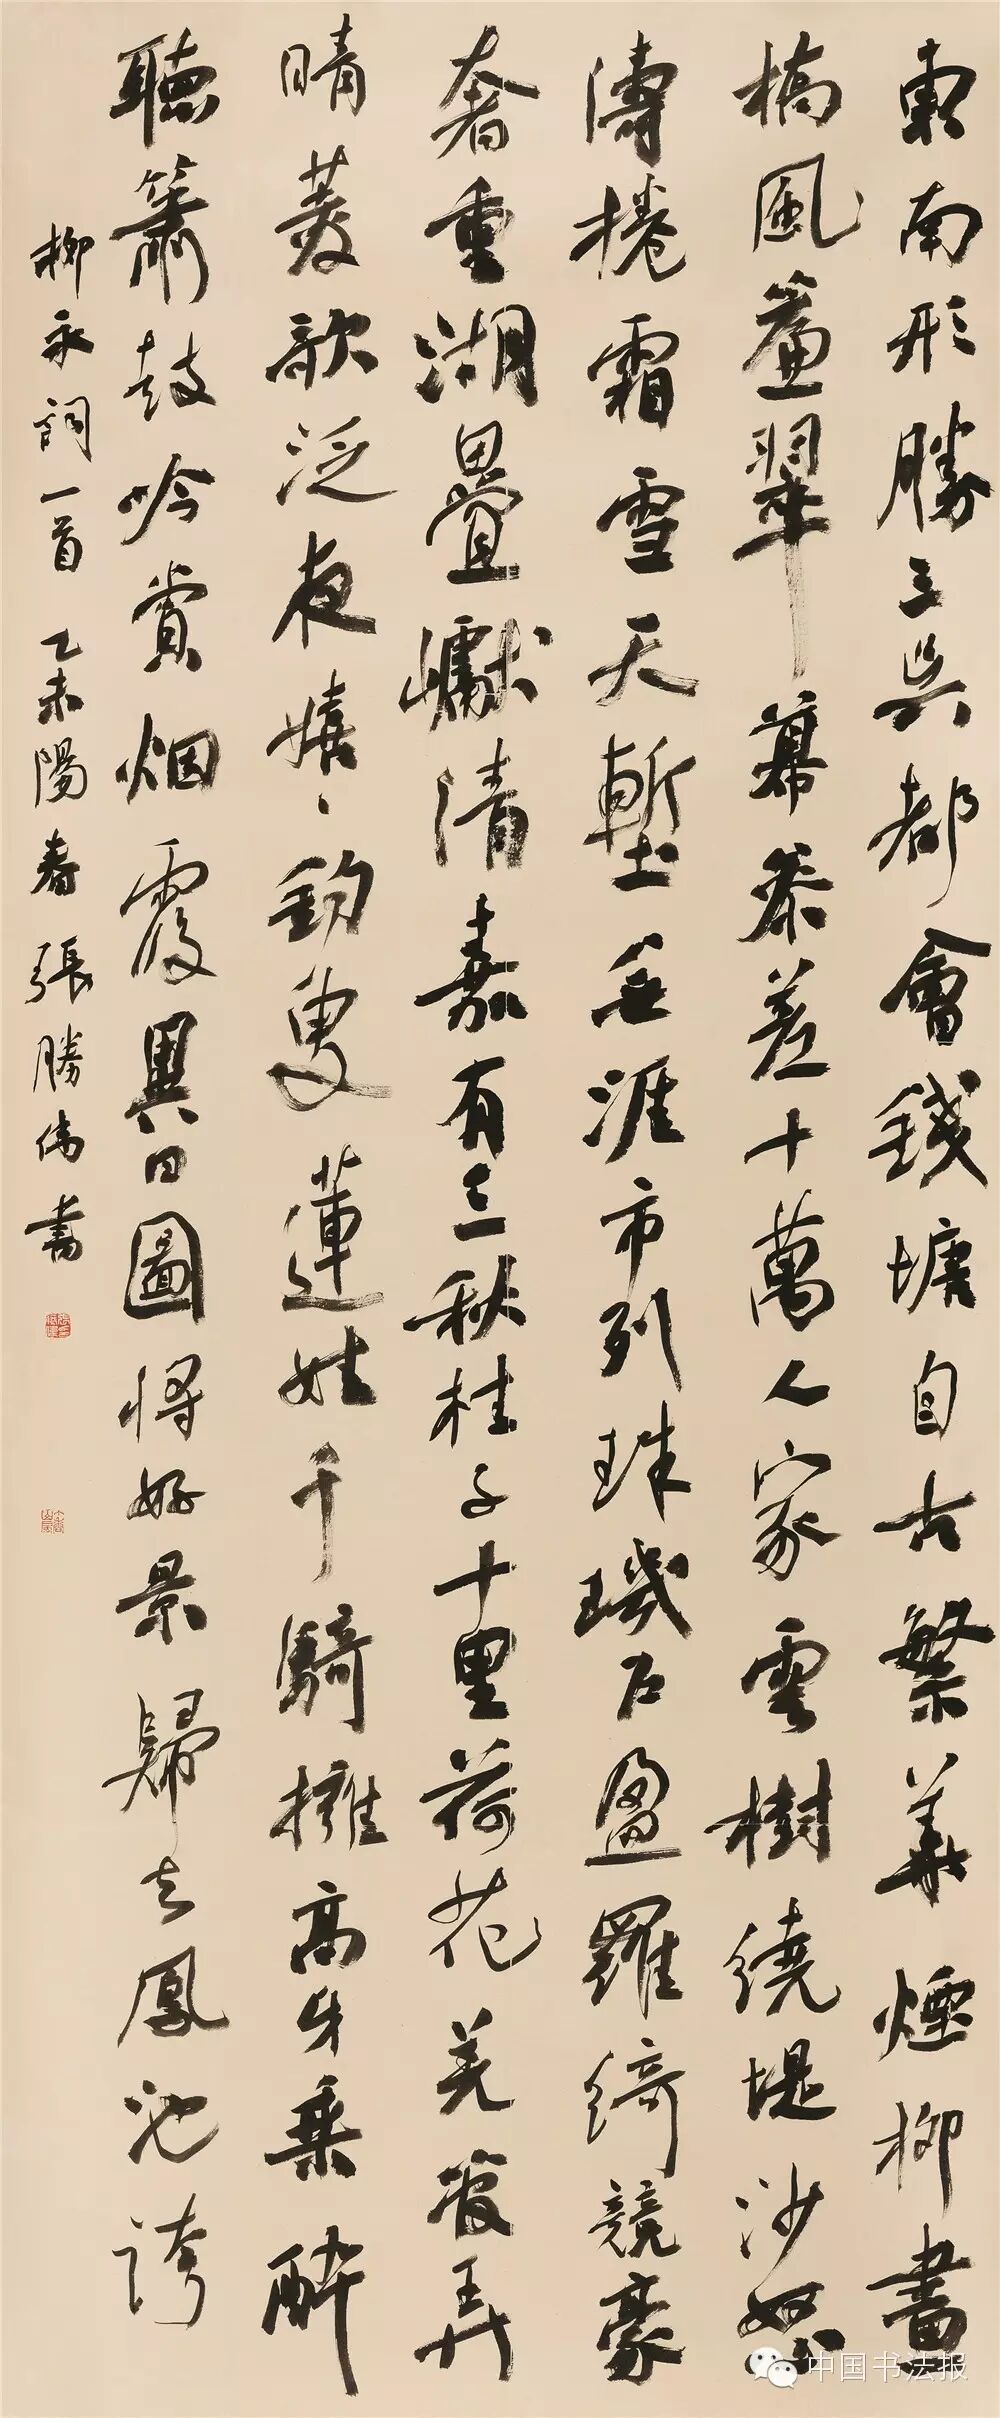 東南形勝三吳都會錢塘自古繁華煙柳畫
橋風簾翠幕參差十萬人家雲樹繞堤沙怒
濤捲霜雪天塹無涯市列珠璣戶盈羅綺競豪
奢重湖疊巘清嘉有三秋桂子十里荷花羌管弄
晴菱歌泛夜嬉、釣叟蓮娃千騎擁高牙乘醉
聽簫鼓吟賞烟霞異日圖將好景歸去鳳池誇
柳永詞一首 乙未陽春 張勝偉書
中国书法报